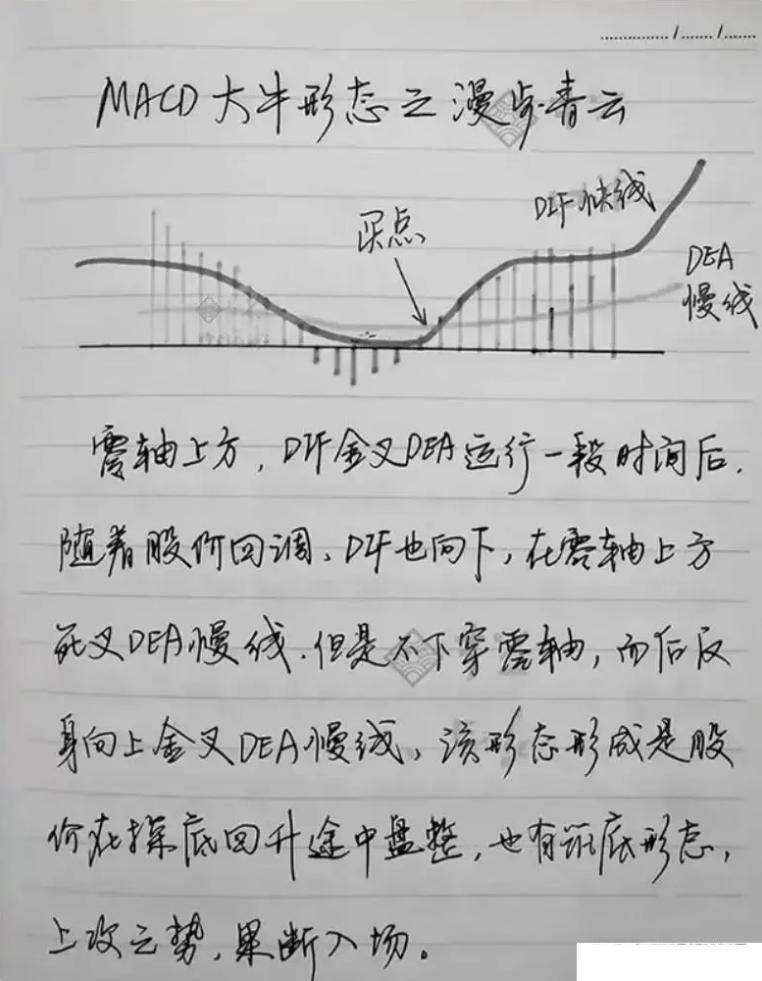 MACD大牛形态之漫步青云
买点
DIF快线
DEA
慢线
零轴上方,DIF金叉DEA运行一段时间后,
随着股价回调、DIF也向下,在零轴上方
死叉DEA慢线.但是不下穿零轴,而后反
身向上金叉DEA慢线,该形态形成是股
价在探底回升途中盘整,也有筑底形态,
上攻之势,果断入场。